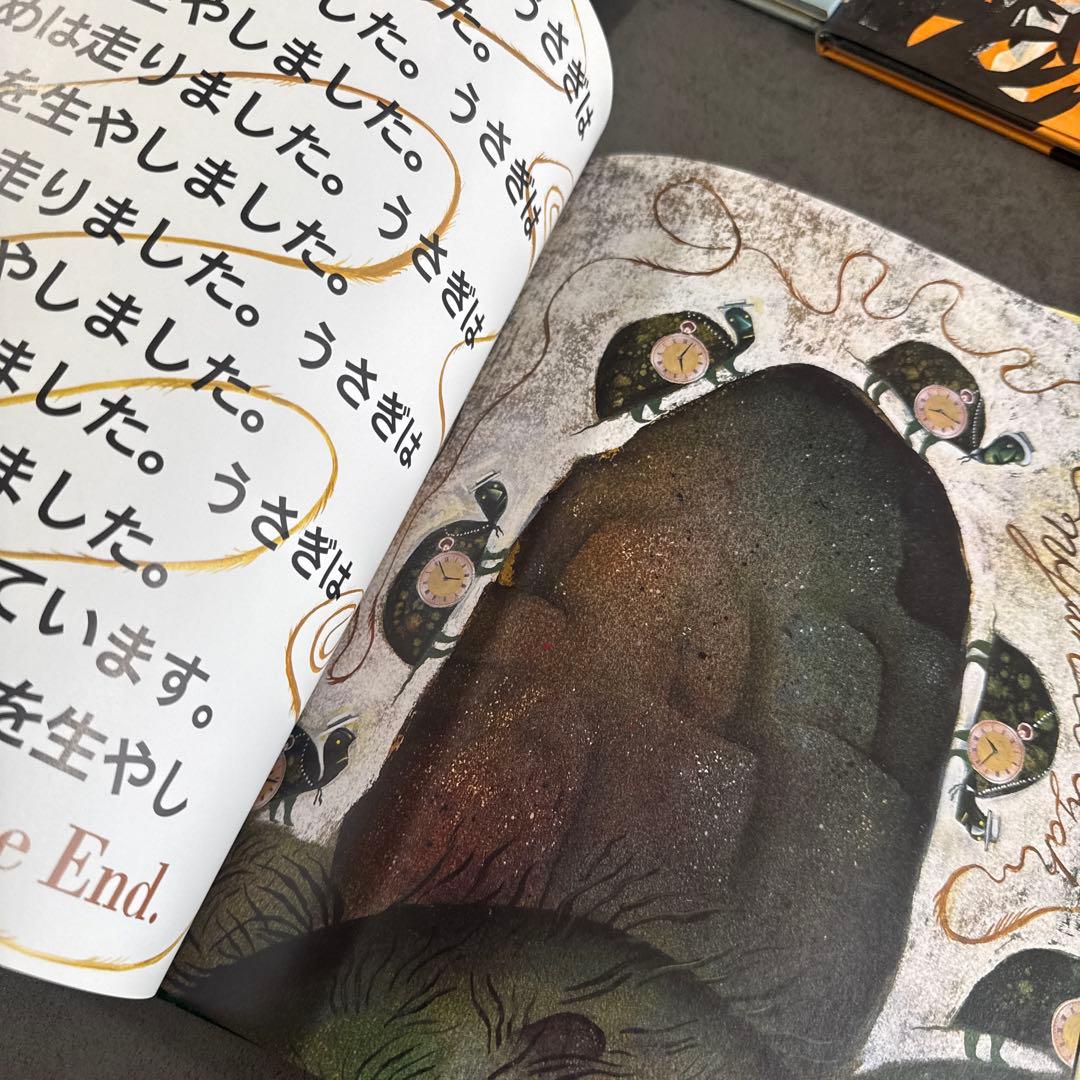 うさぎは
た。
した。うさぎは
生やしました。
めは走りました。うさぎは
を生やしました。
走りました。うさぎは
やしました。
ました。うさぎは
ました。
ています。
を生やし
e End.